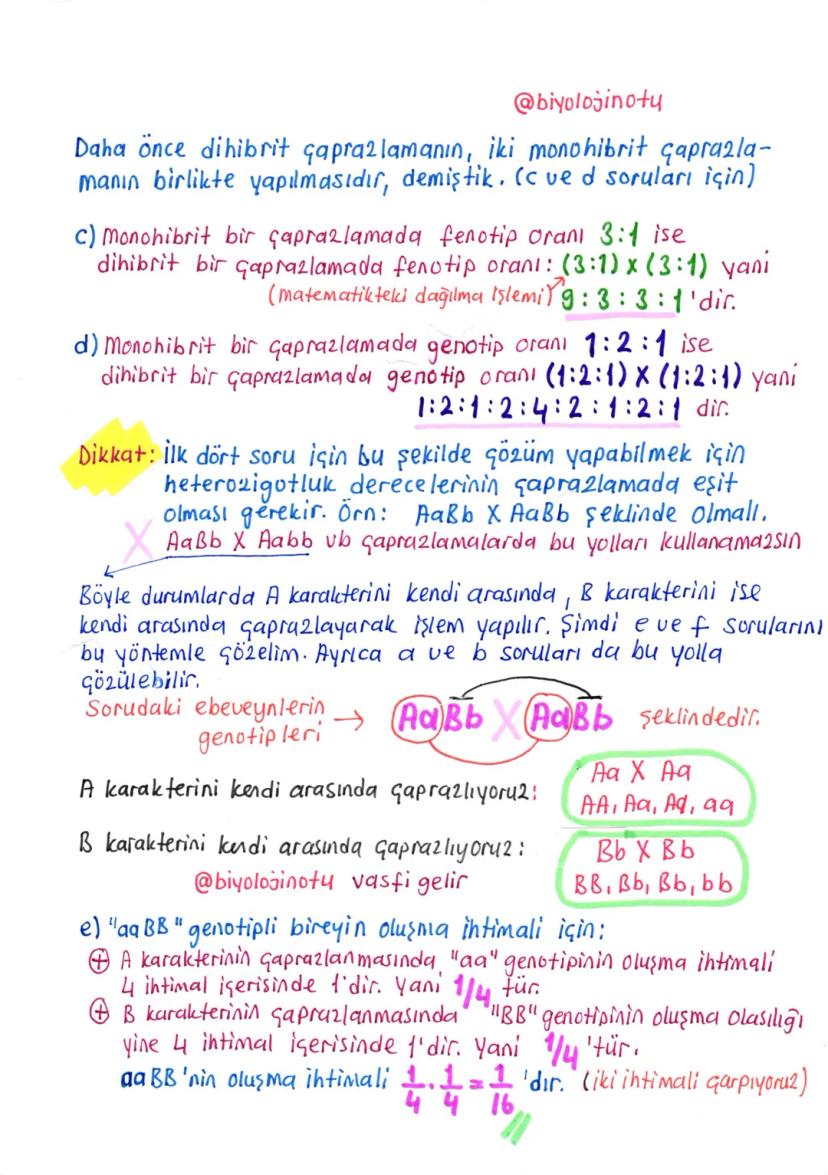 @biyolojinotu
Daha önce dihibrit çaprazlamanın, iki monohibrit çaprazla-
manın birlikte yapılmasıdır, demiştik. (c ve d soruları için)
c) Monohibrit bir çaprazlamada fenotip oranı 3:1 ise
dihibrit bir çaprazlamada fenotip oranı: (3:1) x (3:1) yani
(matematikteki dağılma işlemi) 9:3:3:1'dir.
d) Monohibrit bir çaprazlamada genotip oranı 1:2:1 ise
dihibrit bir çaprazlamada genotip oranı (1:2:1) X (1:2:1) yani
1:2:1:2:4:2:1:2:1 dir.
Dikkat: İlk dört soru için bu şekilde çözüm yapabilmek için
heterozigotluk derecelerinin çaprazlamada eşit
olması gerekir. Örn: AaBb X AaBb şeklinde olmalı.
X AaBb X Aabb vb çaprazlamalarda bu yolları kullanamazsın
Böyle durumlarda A karakterini kendi arasında, B karakterini ise
kendi arasında çaprazlayarak işlem yapılır. Şimdi e ve f sorularını
bu yöntemle çözelim. Ayrıca a ve b soruları da bu yolla
çözülebilir.
Sorudaki ebeveynlerin → AaBb X AaBb şeklindedir.
genotipleri
A karakterini kendi arasında çaprazlıyoruz:
Aa X Aa
AA, Aa, Aa, aa
B karakterini kendi arasında çaprazlıyoruz:
Bb X Bb
BB, Bb, Bb, bb
@biyolojinotu vasfi gelir
e) "aaBB" genotipli bireyin oluşma ihtimali için:
+ A karakterinin çaprazlanmasında "aa" genotipinin oluşma ihtimali
4 ihtimal içerisinde 1'dir. Yani 1/4 tür.
+ B karakterinin çaprazlanmasında "BB" genotipinin oluşma olasılığı
yine 4 ihtimal içerisinde 1'dir. Yani 1/4 'tür.
aaBB'nin oluşma ihtimali 1/4 . 1/4 = 1/16 'dır. (iki ihtimali çarpıyoruz)